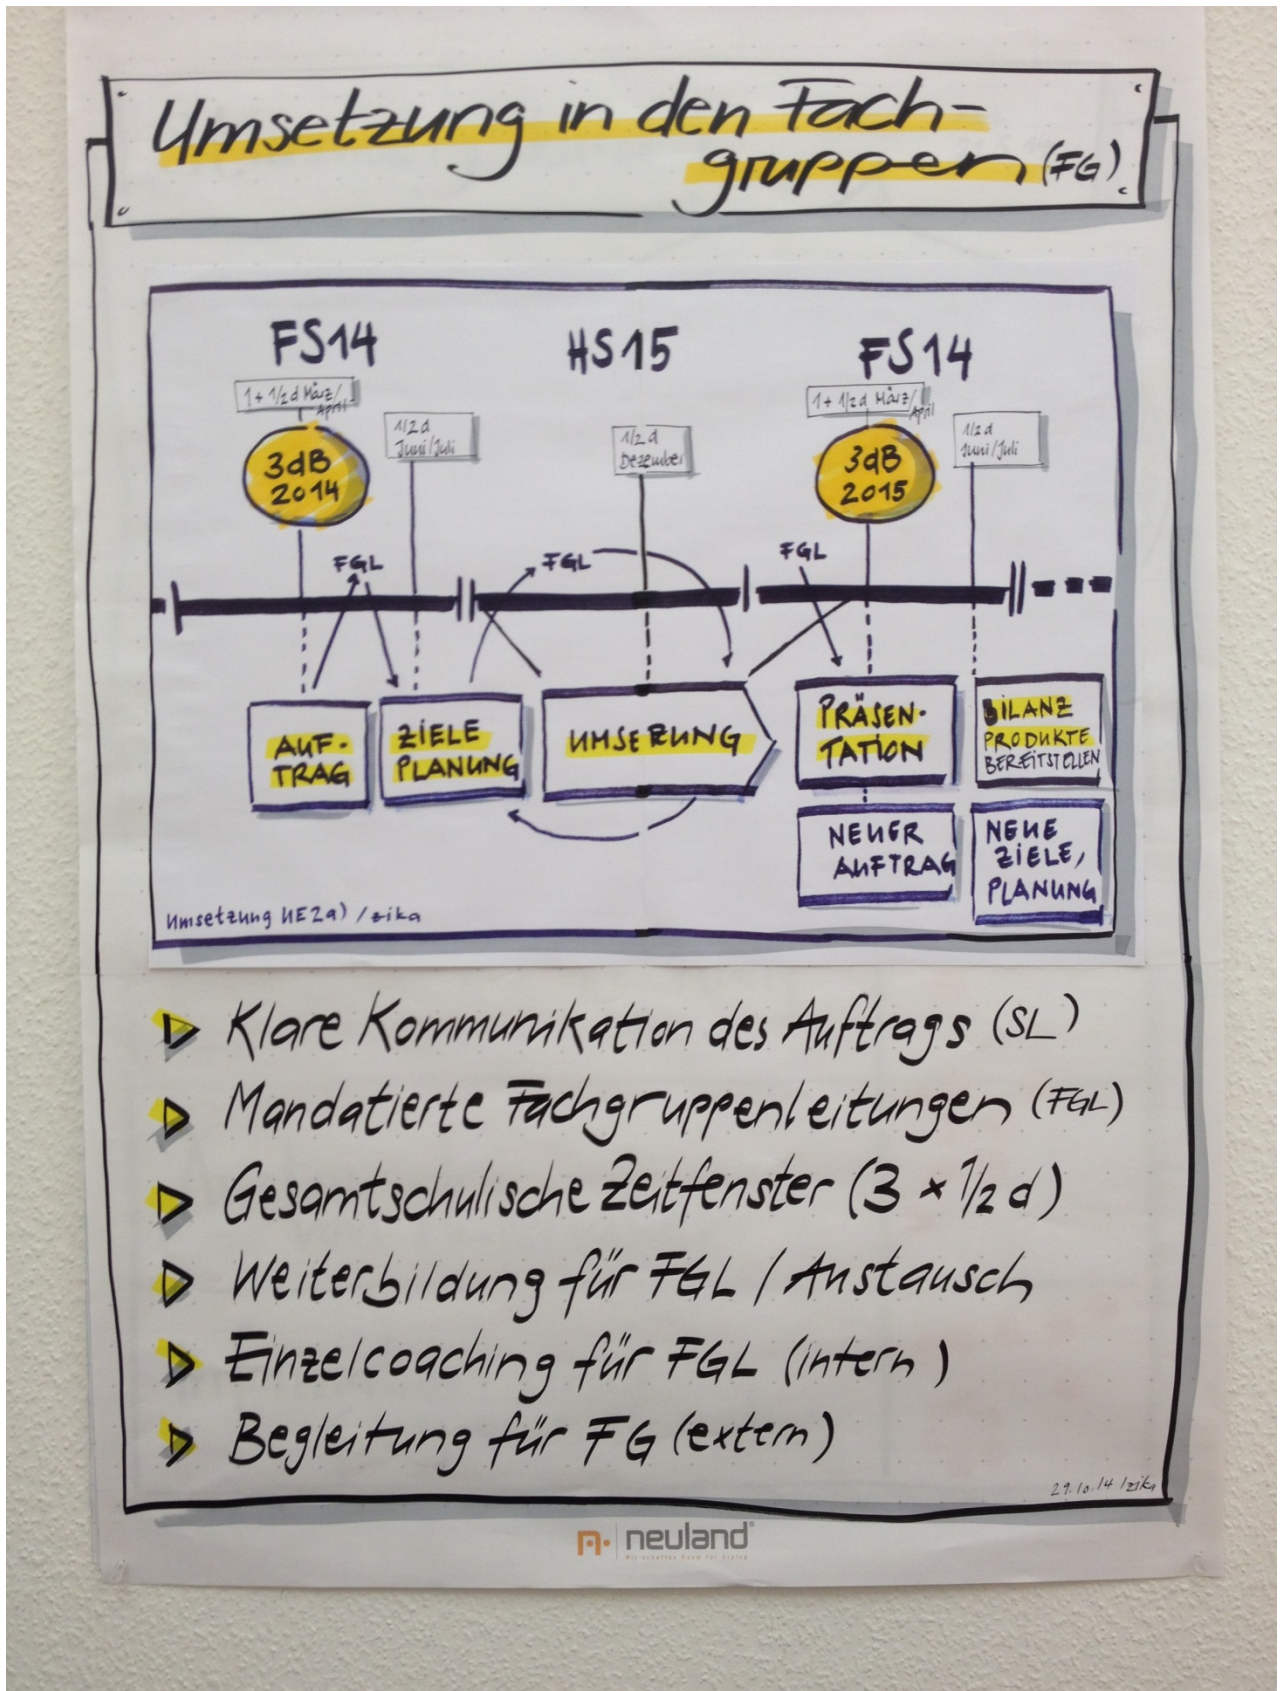 Umsetzung in den Fach-
gruppen (FG)
FS14
HS15
FS14
1 + 1/2 d März/
April
1/2 d
Juni/Juli
1/2 d
Dezember
1 + 1/2 d März/
April
1/2 d
Juni/Juli
3dB
2014
3dB
2015
FGL
FGL
FGL
AUF-
TRAG
ZIELE
PLANUNG
UMSEZUNG
PRÄSEN-
TATION
BILANZ
PRODUKTE
BEREITSTELLEN
NEUER
AUFTRAG
NEUE
ZIELE,
PLANUNG
Umsetzung UE2a) /zika
Klare Kommunikation des Auftrags (SL)
Mandatierte Fachgruppenleitungen (FGL)
Gesamtschulische Zeitfenster (3 × 1/2 d)
Weiterbildung für FGL / Austausch
Einzelcoaching für FGL (intern)
Begleitung für FG (extern)
29.10.14 /zika
n. neuland®
Wir schaffen Raum für Dialog